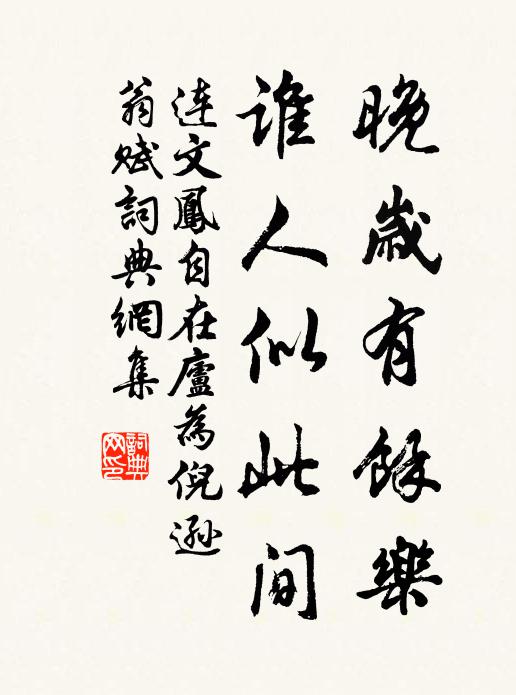 晚歲有餘樂
誰人似此間
連文鳳自在廬為倪遜
翁賦詞典網集
詞典網印